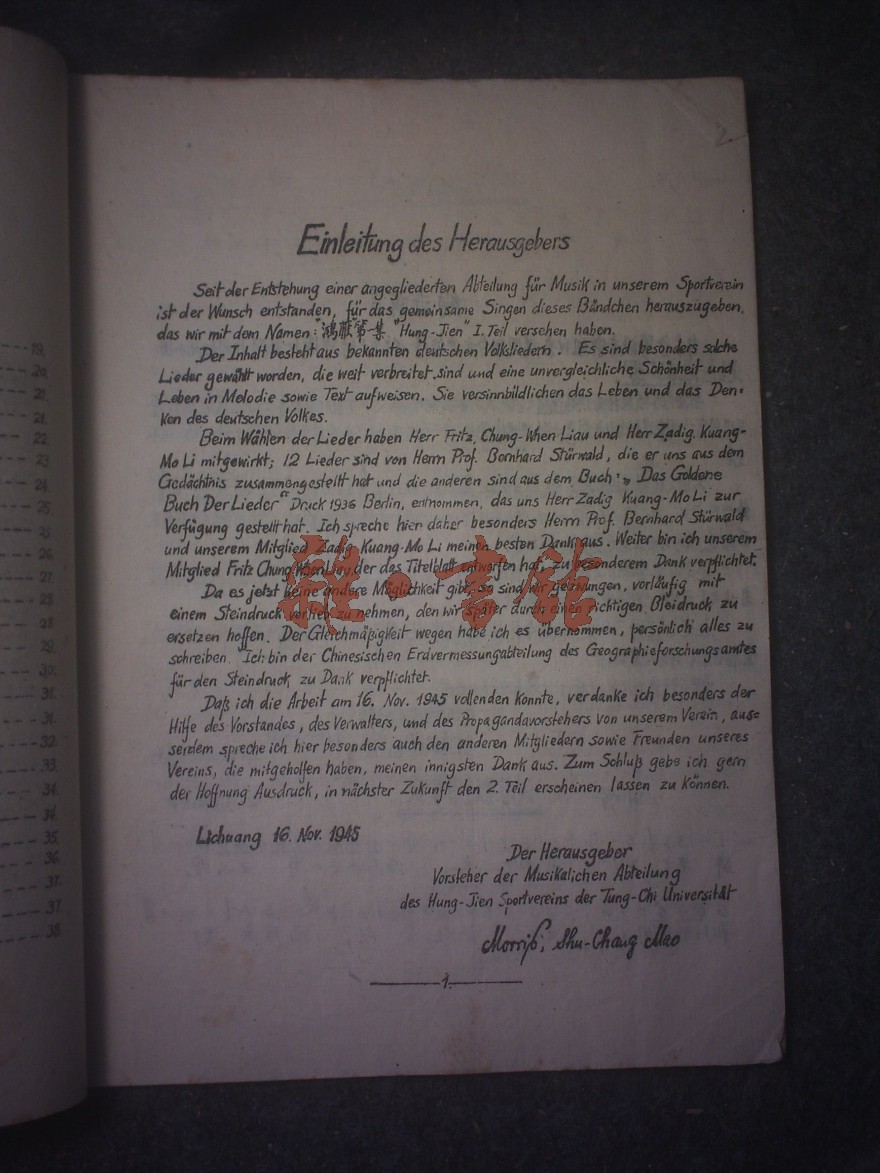 2.
Einleitung des Herausgebers
Seit der Entstehung einer angegliederten Abteilung für Musik in unserem Sportverein
ist der Wunsch entstanden, für das gemeinsame Singen dieses Bändchen herauszugeben,
das wir mit dem Namen: "鴻猷第一集 "Hung-Jien" I. Teil versehen haben.
Der Inhalt besteht aus bekannten deutschen Volksliedern. Es sind besonders solche
Lieder gewählt worden, die weit verbreitet sind und eine unvergleichliche Schönheit und
Leben in Melodie sowie Text aufweisen. Sie versinnbildlichen das Leben und das Den-
ken des deutschen Volkes.
Beim Wählen der Lieder haben Herr Fritz, Chung-When Liau und Herr Zadig, Kuang-
Mo Li mitgewirkt; 12 Lieder sind von Herrn Prof. Bernhard Stürwald, die er uns aus dem
Gedächtnis zusammengestellt hat und die anderen sind aus dem Buch: „Das Goldene
Buch Der Lieder“ Druck 1936 Berlin, entnommen, das uns Herr Zadig Kuang-Mo Li zur
Verfügung gestellt hat. Ich spreche hier daher besonders Herrn Prof. Bernhard Stürwald
und unserem Mitglied Zadig, Kuang-Mo Li meinen besten Dank aus. Weiter bin ich unserem
Mitglied Fritz Chung When Liau, der das Titelblatt entworfen hat, zu besonderem Dank verpflichtet.
Da es jetzt keine andere Möglichkeit gibt, so sind wir gezwungen, vorläufig mit
einem Steindruck vorlieb zu nehmen, den wir später durch einen richtigen Bleidruck zu
ersetzen hoffen. Der Gleichmäßigkeit wegen habe ich es übernommen, persönlich alles zu
schreiben. Ich bin der Chinesischen Erdvermessungabteilung des Geographieforschungsamtes
für den Steindruck zu Dank verpflichtet.
Daß ich die Arbeit am 16. Nov. 1945 vollenden konnte, verdanke ich besonders der
Hilfe des Vorstandes, des Verwalters, und des Propagandavorstehers von unserem Verein, aus-
serdem spreche ich hier besonders auch den anderen Mitgliedern sowie Freunden unseres
Vereins, die mitgeholfen haben, meinen innigsten Dank aus. Zum Schluß gebe ich gern
der Hoffnung Ausdruck, in nächster Zukunft den 2. Teil erscheinen lassen zu können.
Lichuang 16. Nov. 1945
Der Herausgeber
Vorsteher der Musikalichen Abteilung
des Hung-Jien Sportvereins der Tung-Chi Universität
Morriß, Shu-Chang Mao
1.
雜·書館
19.
20.
21.
21.
22.
23.
24.
25.
25.
26.
27.
28.
28.
29.
30.
31.
31.
32.
33.
34.
34.
35.
36.
37.
37.
38.